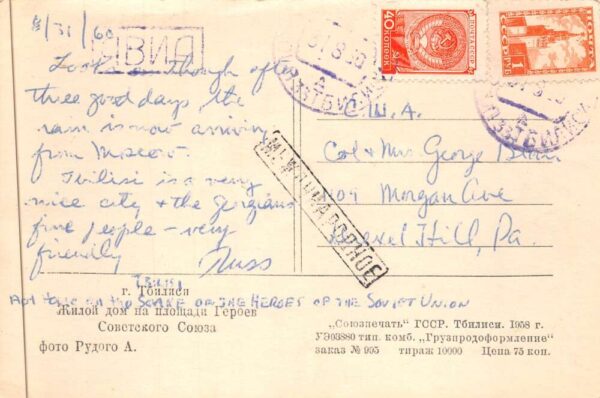 8/31/60
АВИА
Looks as though after
three good days the
rain is now arriving
from Moscow.
Tbilisi is a very
nice city & the Georgians
fine people – very
friendly
Russ
40 КОПЕЕК
ПОЧТА
СССР 1 РУБ
31 8 60
С.Ш.А.
Col & Mrs. George
Morgan Ave
Drexel Hill, Pa.
МЕЖДУНАРОДНОЕ
TBILISI
г. Тбилиси
HOUSE ON THE SQUARE OF THE HEROES OF THE SOVIET UNION
Жилой дом на площади Героев
Советского Союза
фото Рудого А.
„Союзпечать" ГССР. Тбилиси. 1958 г.
УЭ03880 тип. комб. „Грузпродоформление"
заказ № 995 тираж 10000 Цена 75 коп.